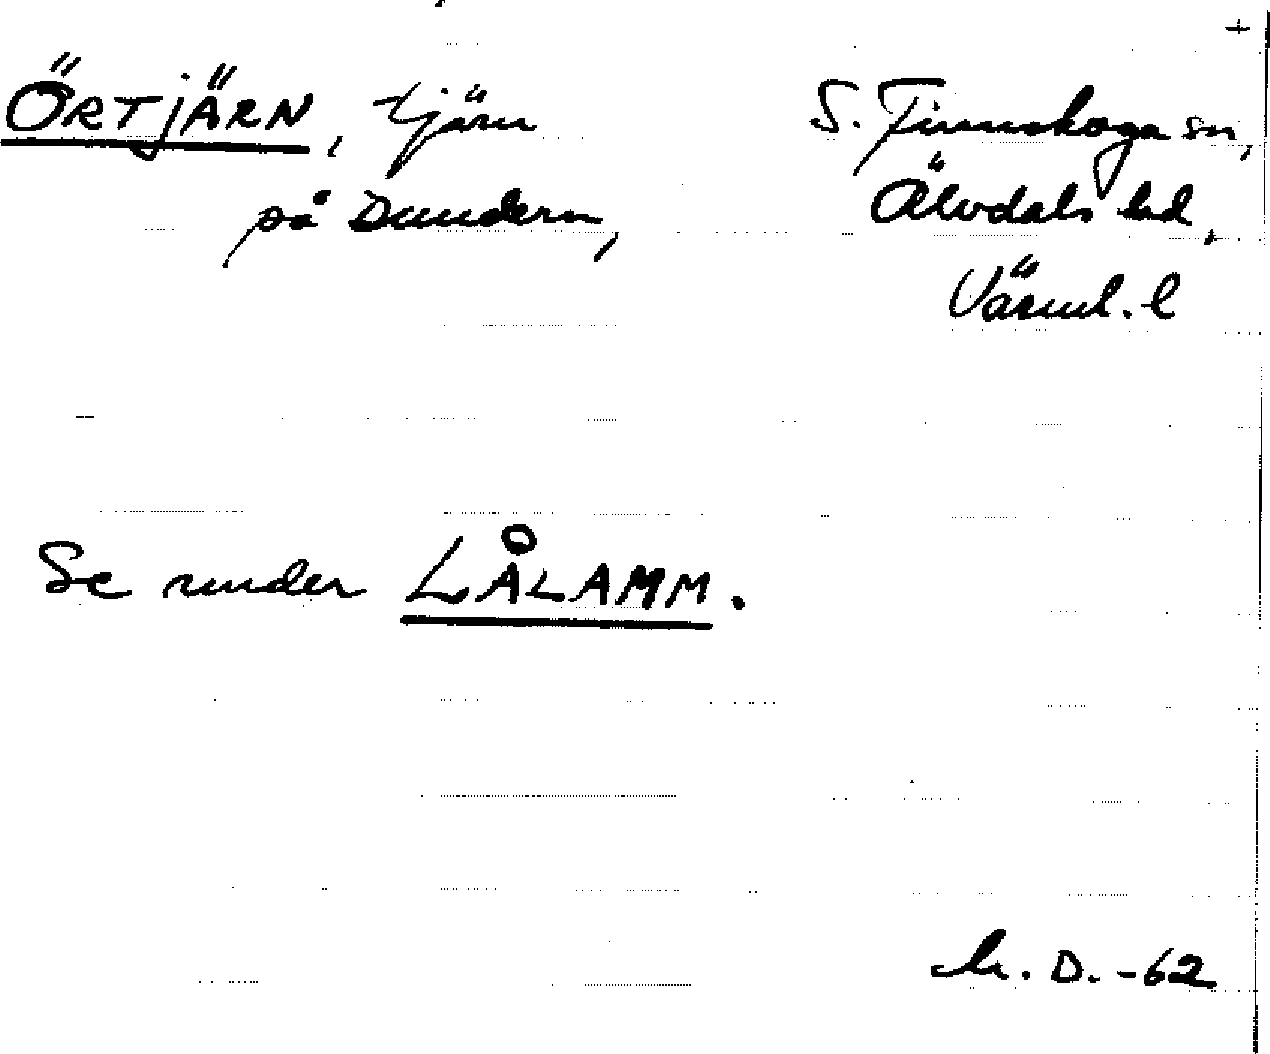 +
ÖRTJÄRN, tjärn
S. Finnskoga sn,
på Dundern,
Älvdals hd,
Värml. l
Se under LÅLAMM.
D. -62